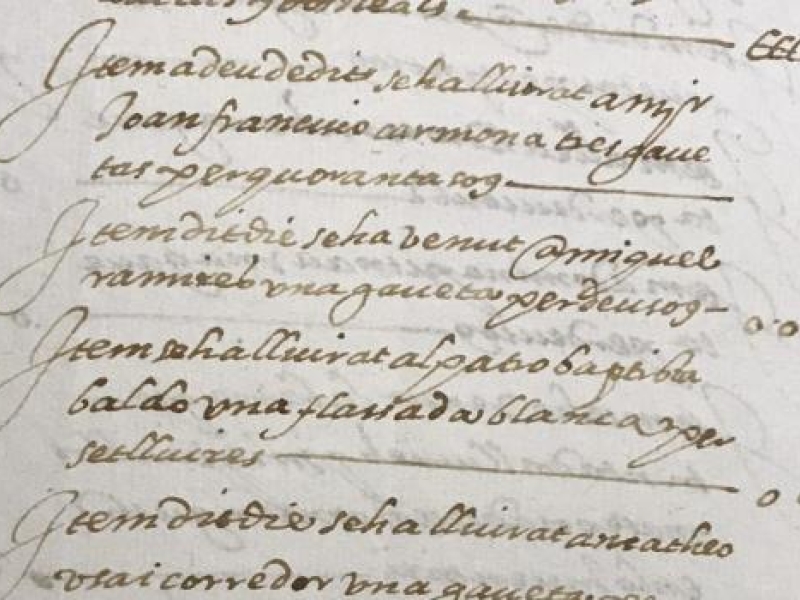 Item a deu de dit se ha lliurat a mr
Joan francisco carmona tres gave
tas per quoranta sog
Item dit die se ha venut a miquel
ramires una gaveta per deu sog
Item se ha lliurat al patro baptista
baldo una flassada blanca per
set lliures
Item dit die se ha lliurat a matheo
corredor una gaveta